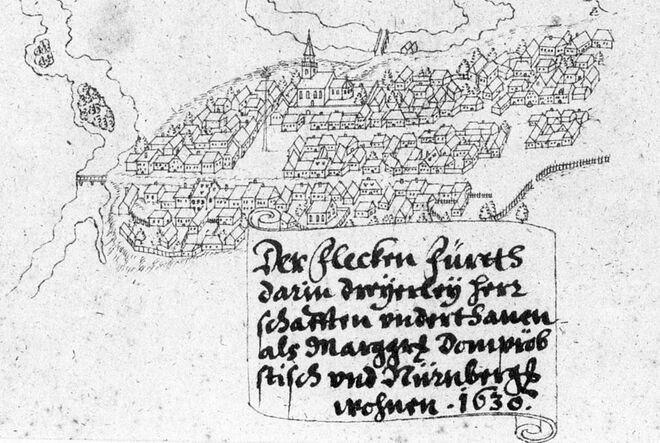 Der Flecken Fürtts
darin dreyerley herr
schafften vnderthanen
als Marggrf Dompröb
stisch vnd Nürnbergs
wohnen . 1630.